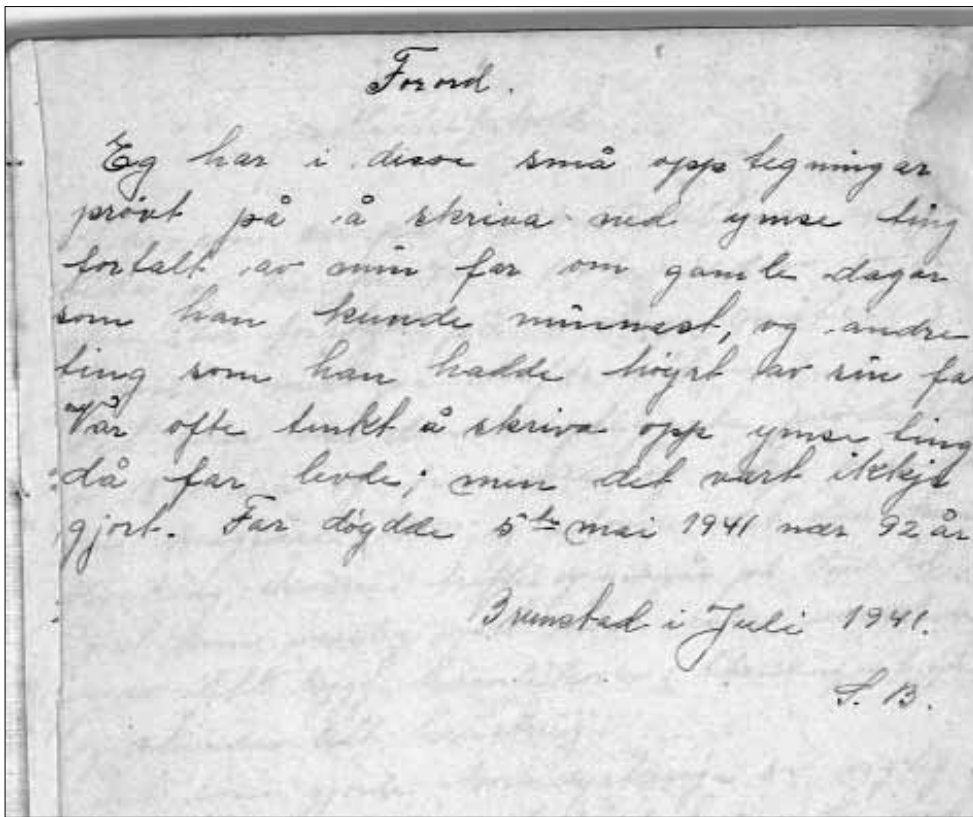 Forord.
Eg har i disse små opptegningar
prøvt på å skriva ned ymse ting
fortalt av min far om gamle dagar
som han kunde minnest, og andre
ting som han hadde høyrt av sin fa
Var ofte tenkt å skriva opp ymse ting
då far levde; men det vart ikkje
gjort. Far døydde 5te mai 1941 nær 92 år
Brunstad i Juli 1941.
S. B.